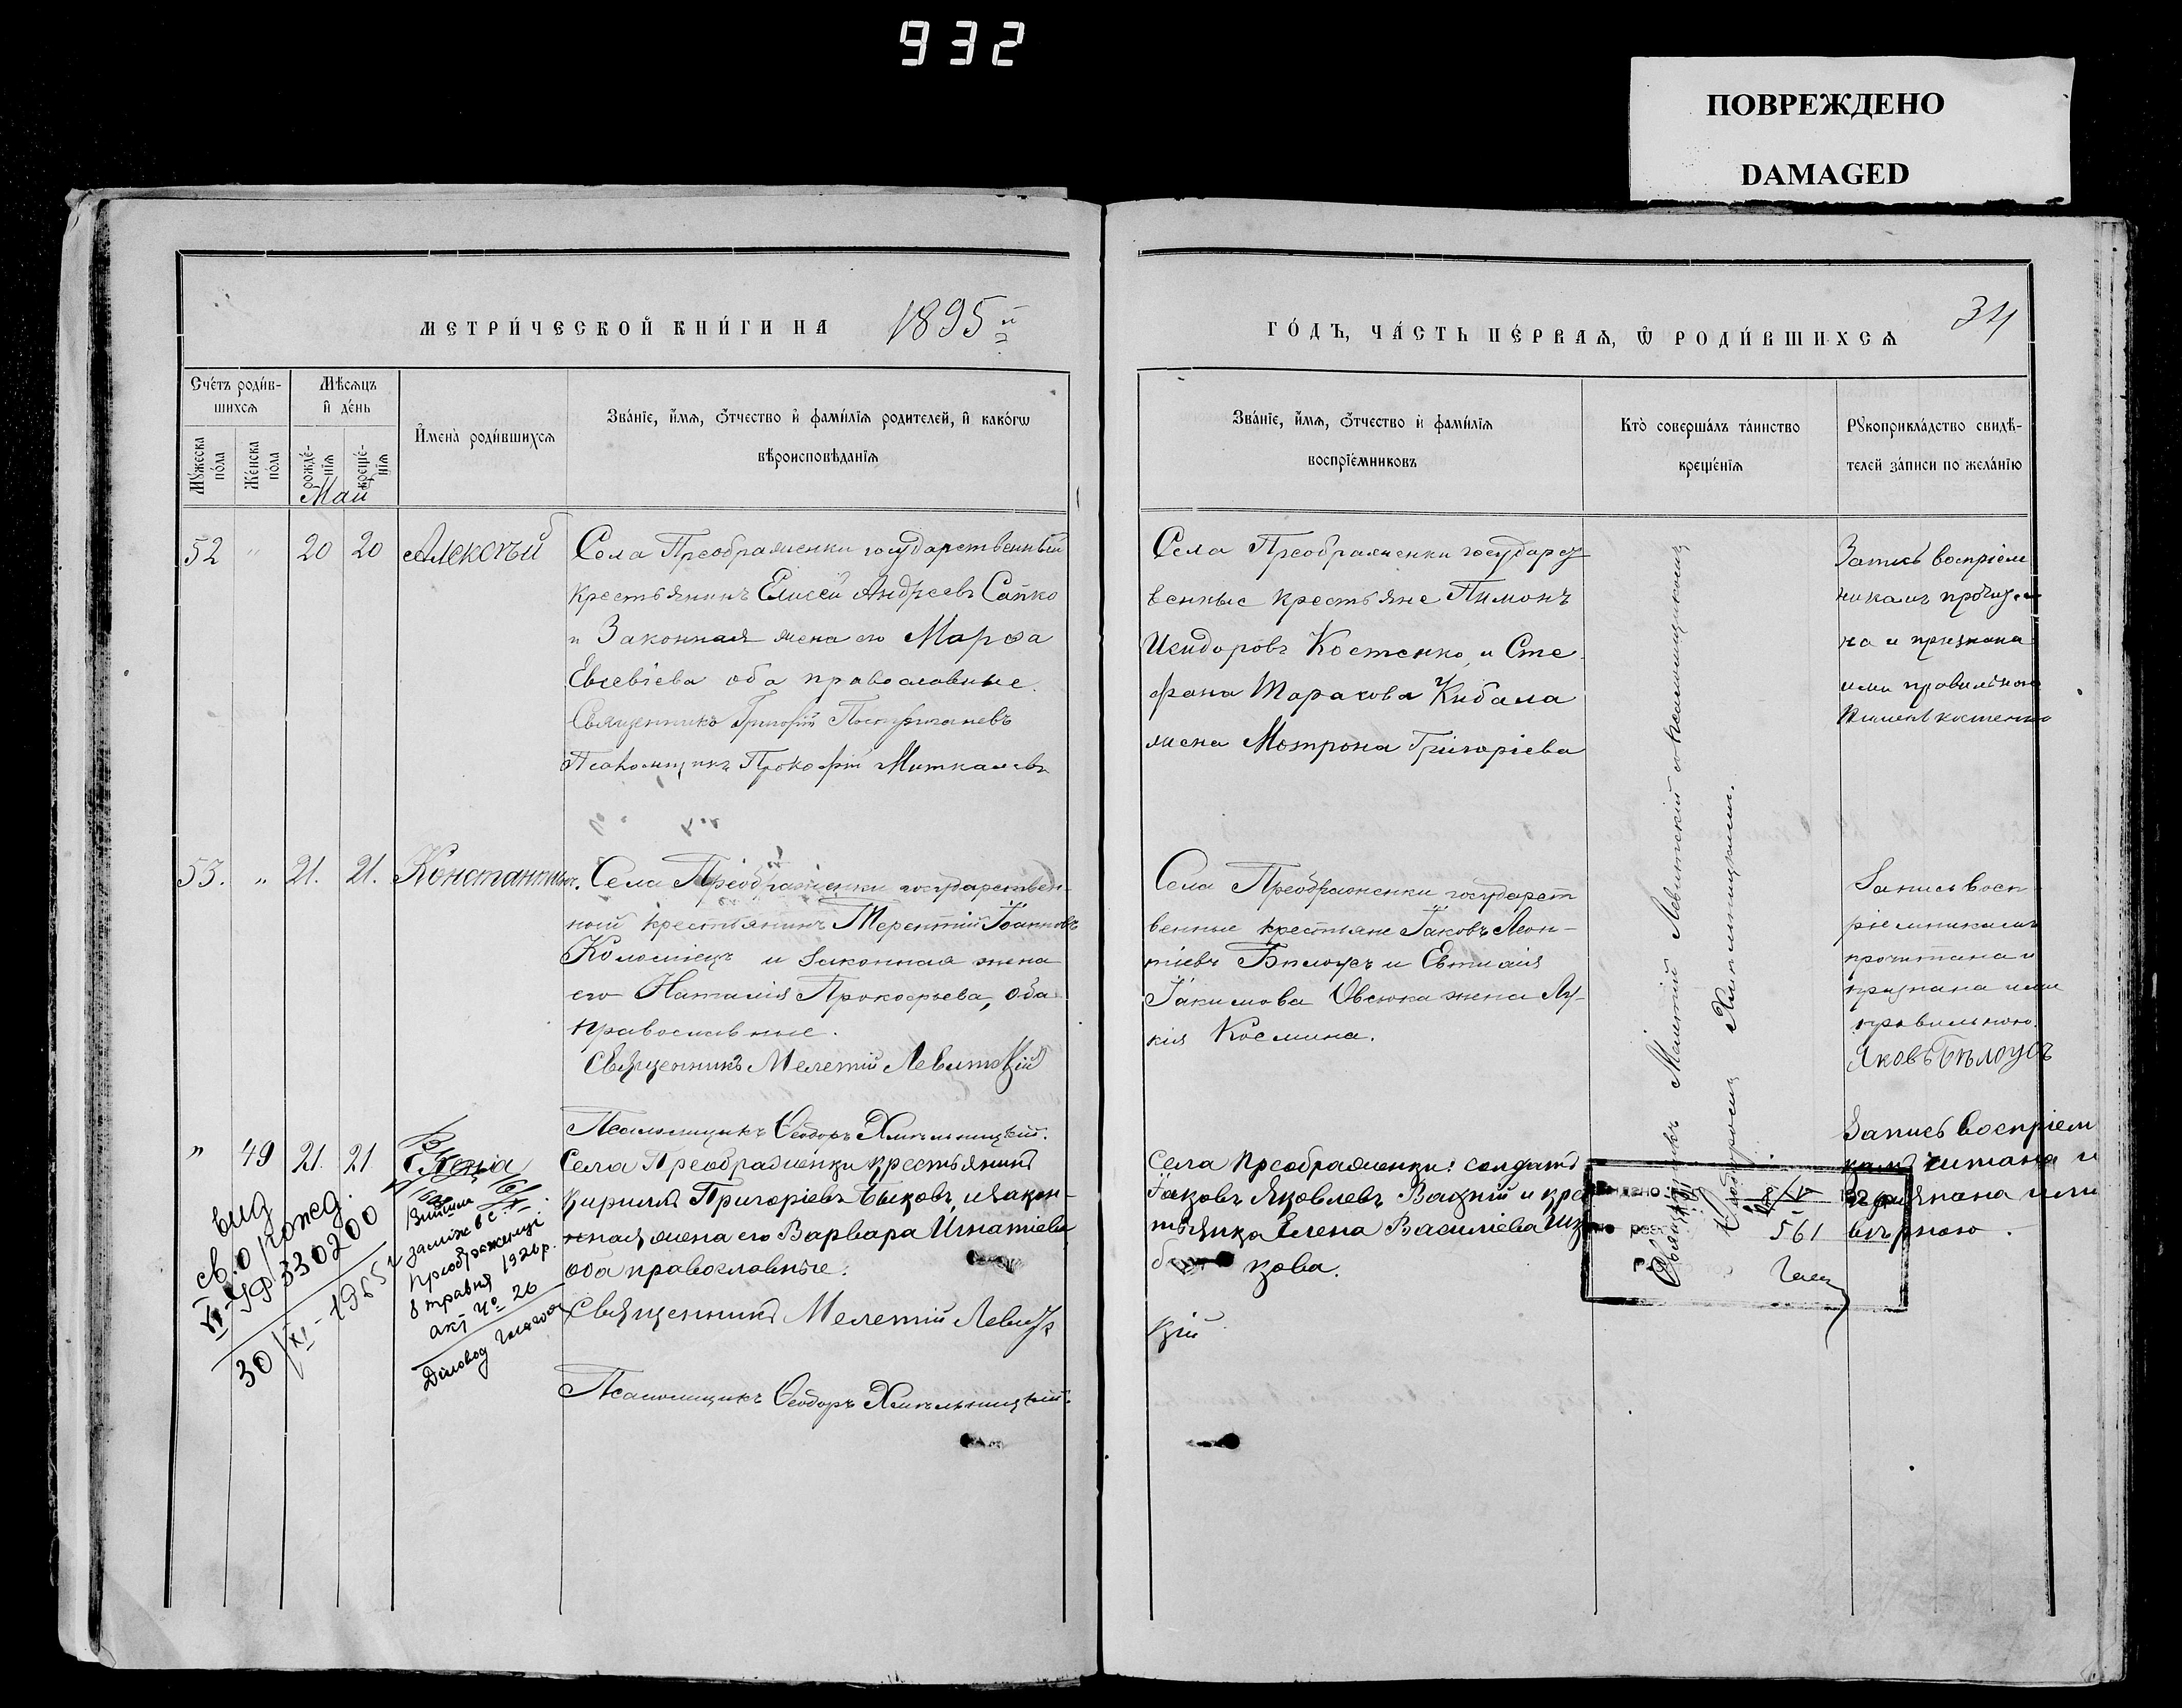 932
ПОВРЕЖДЕНО
DAMAGED
МЕТРИ́ЧЕСКОЙ КНИ́ГИ НА 1895й
ГО́ДЪ, ЧА́СТЬ ПЕ́РВАѦ, Ѡ РОДИ́ВШИХСѦ
34
Сче́тъ роди́в-
шихсѧ
Мꙋ́жеска по́ла
Же́нска по́ла
Мѣ́сѧцъ
и҆ де́нь
рожде́-
нїѧ
креще́-
нїѧ
Май
И҆мена̀ роди́вшихсѧ
Зва́нїе, и҆́мѧ, ѻ҆́тчество и҆ фами́лїѧ родителей, и҆ како́гѡ
вѣроисповѣ́данїѧ
Зва́нїе, и҆́мѧ, ѻ҆́тчество и҆ фами́лїѧ
воспрїе́мниковъ
Кто̀ соверша́лъ та́инство
креще́нїѧ
Рꙋкоприкла́дство свидѣ́-
телей за́писи по жела́нїю
52 " 20 20 Алексѣй
Села Преображенки государственный
крестьянинъ Елисей Андреевъ Сапко
и Законная жена его Марѳа
Евсевіева оба православные.
Священникъ Григорій
Псаломщикъ Прокофій Миткалевъ
Села Преображенки государст
венные крестьяне Пимонъ
Исидоровъ Костенко, и Сте
фана Тарасова Кибала
жена Мотрона Григоріева
Запись воспріем
никамъ прочита
на и признана
ими правильною
Пименъ Костенко
53. " 21. 21. Константинъ.
Села Преображенки государствен-
ный крестьянинъ Терентій Іоанновъ
Коломіецъ и Законная жена
его Наталія Прокофьева, оба
православные.
Священникъ Мелетій Левитскій
Псаломщикъ Ѳеодоръ Хмельницкій.
Села Преображенки государст
венные крестьяне Іаковъ Леон-
тіевъ Билоусъ и Евтихія
Іакимова Овсюка жена Лу-
кія Космина.
Запись восп
ріемникамъ
прочитана и
признана ими
правильною.
Яковъ Бѣлоусъ
" 49 21. 21
Села Преображенки крестьянинъ
Кириллъ Григоріевъ Быковъ, и закон-
ная жена его Варвара Игнатіева
оба православные.
Священникъ Мелетій Левитс
кій
Псаломщикъ Ѳеодоръ Хмельницкій.
Села Преображенки: солдатъ
Іаковъ Яковлевъ и крес
тьянка Елена Василіева
кова.
Запись воспріем
камъ читана и
признана ими
вѣрною.
Священникъ Мелетій Левитскій съ псаломщикомъ
Ѳеодоромъ Хмельницкимъ.
561
выд
св. о рожед.
VI-УР 330200
30/XI-1955 г
Вийшла
заміж в с.
Преображенці
8 травня 1926 р.
акт № 26
Діловод